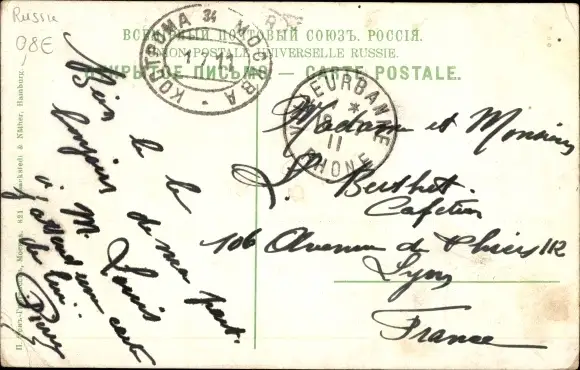 Russie
08E
ВСЕМІРНЫЙ ПОЧТОВЫЙ СОЮЗЪ. РОССІЯ.
UNION POSTALE UNIVERSELLE RUSSIE.
ОТКРЫТОЕ ПИСЬМО. — CARTE POSTALE.
КОСТРОМА 34 МОСКВА
VILLEURBANNE
11
RHONE
Madame et Monsieur
L. Berthet
Cafetier
106 Avenue de Thiers 112
Lyon
France
Bien le
bonjour de ma part.
à M. Louis
j'attend une carte
de lui.
& Näther, Hamburg.